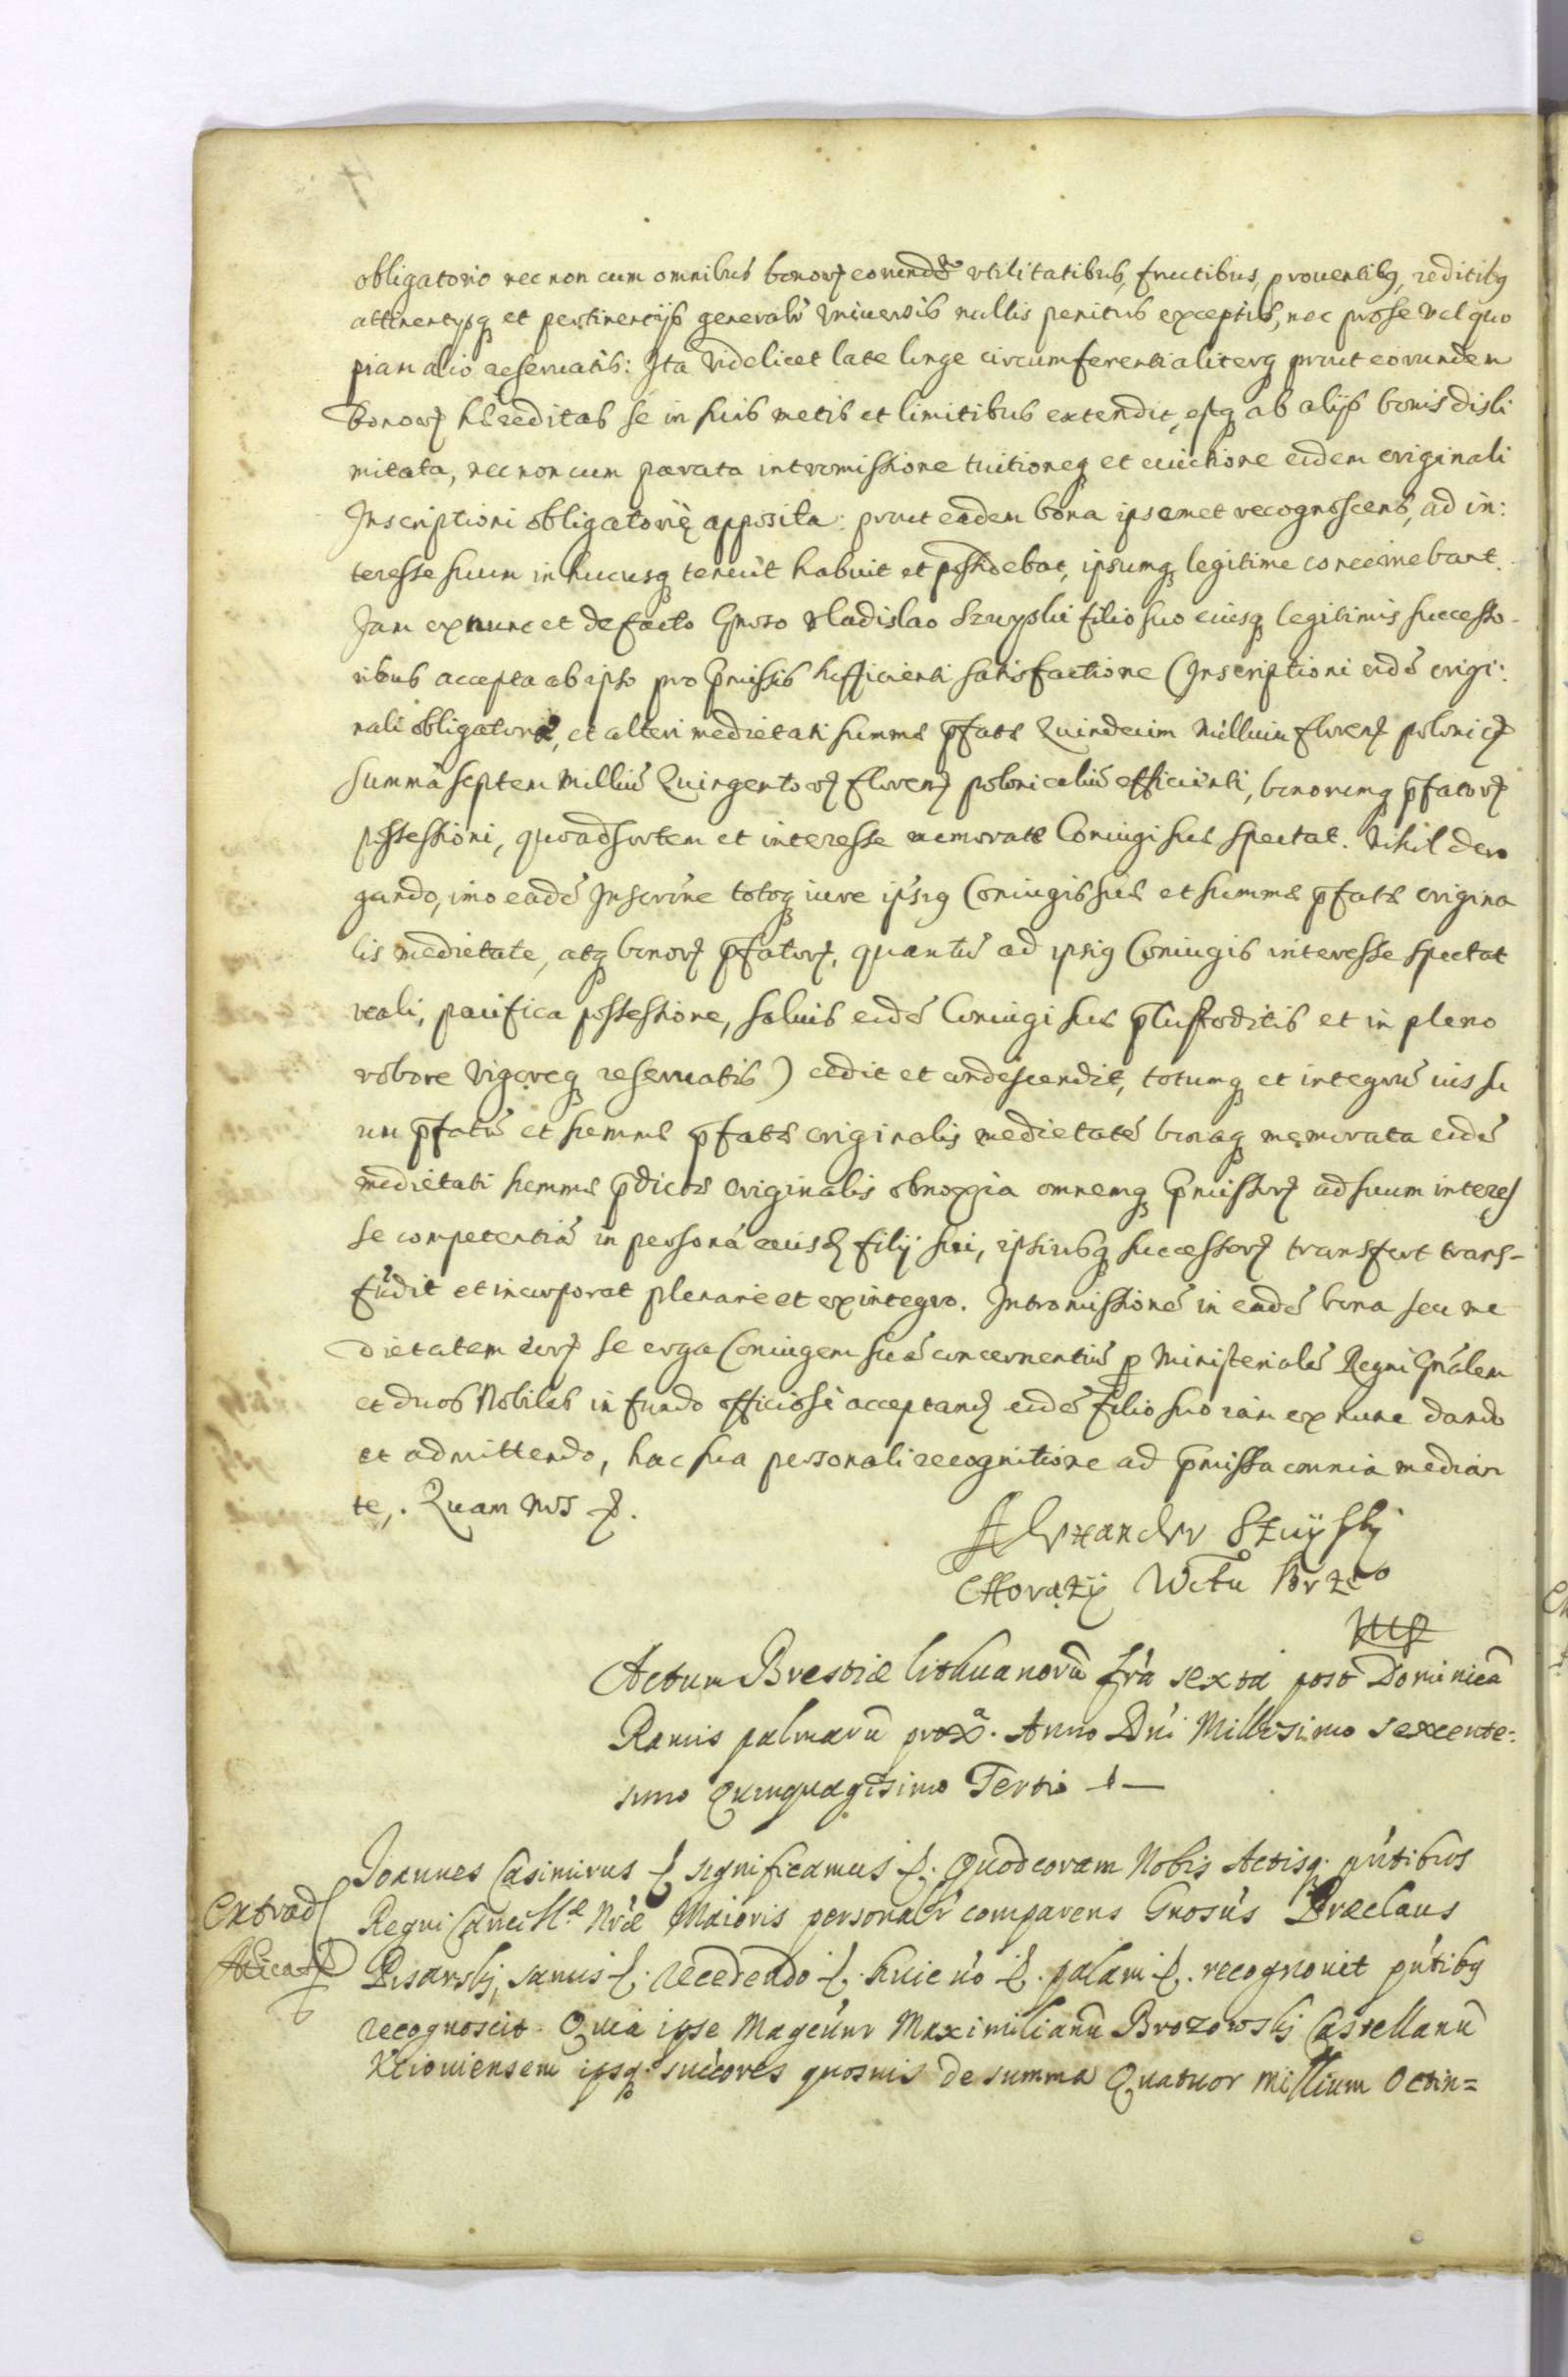 obligatorio nec non cum omnibus bonorꝫ eorundē vtilitatibus, fructibus, prouentibꝫ, reditibꝫ
attinentijsqꝫ et pertinentijs generalr̄ vniuersis nullis penitus exceptis, nec pro se vel quo
piam alio reseruatis: Ita videlicet late longe circumferentialiterqꝫ prout eorundem
bonorꝫ hęreditas se in suis metis et limitibus extendit, estqꝫ ab alijs bonis disli
mitata, nec non cum parata intromissione tuitioneqꝫ et euictione eidem originali
Inscriptioni obligatorię apposita: prout eadem bona ipsemet recognoscens, ad in:
teresse suum in hucusqꝫ tenuit habuit et possidebat, ipsumqꝫ legitime concernebant.
Jam ex nunc et de facto Gnoso Vladislao Szuyski filio suo eiusqꝫ legitimis successo-
ribus accepta ab ipso pro p̄missis sufficienti satisfactione (Inscriptioni eidē origi:
nali obligatoriæ, et alteri medietati summæ p̄fatæ Quindecim Millium florenꝫ polonicꝫ
summā septem Milliū Quingentorꝫ florenꝫ polonicaliū efficienti, bonorumqꝫ p̄fatorꝫ
possessioni, quoad sortem et interesse memoratæ Coniugi suæ spectat. Nihil dero
gando, imo eadē Inscri̅ne totoqꝫ iure ipsiꝫ Coniugis suæ et summæ p̄fatæ origina
lis medietate, atqꝫ bonorꝫ p̄fatorꝫ, quantū ad ipsiꝫ Coniugis interesse spectat
reali, pacifica possessione, saluis eidē Coniugi suæ p̄custoditis et in pleno
robore vigoreqꝫ reseruatis) cedit et condescendit, totumqꝫ et integrū ius su
um p̄fatū et summæ p̄fatæ originalis medietatē bonaqꝫ memorata eidē
medietati summæ p̄dictæ originalis obnoxia omnemqꝫ p̄missorꝫ ad suum interes
se competentiā in personā eiusdꝫ filij sui, ipsiusqꝫ successorꝫ transfert trans-
fūdit et incorporat plenarie et ex integro. Intromissionē in eadē bona seu me
dietatem eorꝫ se erga Coniugem suā concernentiū p̱ Ministerialē Regni Gn̄alem
et duos Nobiles in fundo officiose acceptandꝫ eidē filio suo iam ex nunc dando
et admittendo, hac sua personali recognitione ad p̄missa omnia median
te,. Quam nos etc.
Alexander Szuyski
Chorąży Wctu Brzgo
mp
Actum Brestiæ Lithuanorū fr̄a sexta post Dominicā
Ramis palmarū proxᵃ. Anno Dn̄i Millesimo sexcente:
simo Quinquagesimo Tertio
Joannes Casimirus etc significamus etc. Quod coram Nobis Actisqꝫ pn̄tibus
Extrad
Regni Cancellæ Nr̄æ Maioris personalr̄ comparens Gnosus Præclaus
Pisarskj, sanus etc. recedendo etc. huic v̄o etc. palam etc. recognouit pn̄tibꝫ
recognoscit. Quia ipse Magcum Maximilianū Brozowskj Castellanū
Kiouiensem ipsqꝫ succores quosuis de summa Quatuor millium Octin=